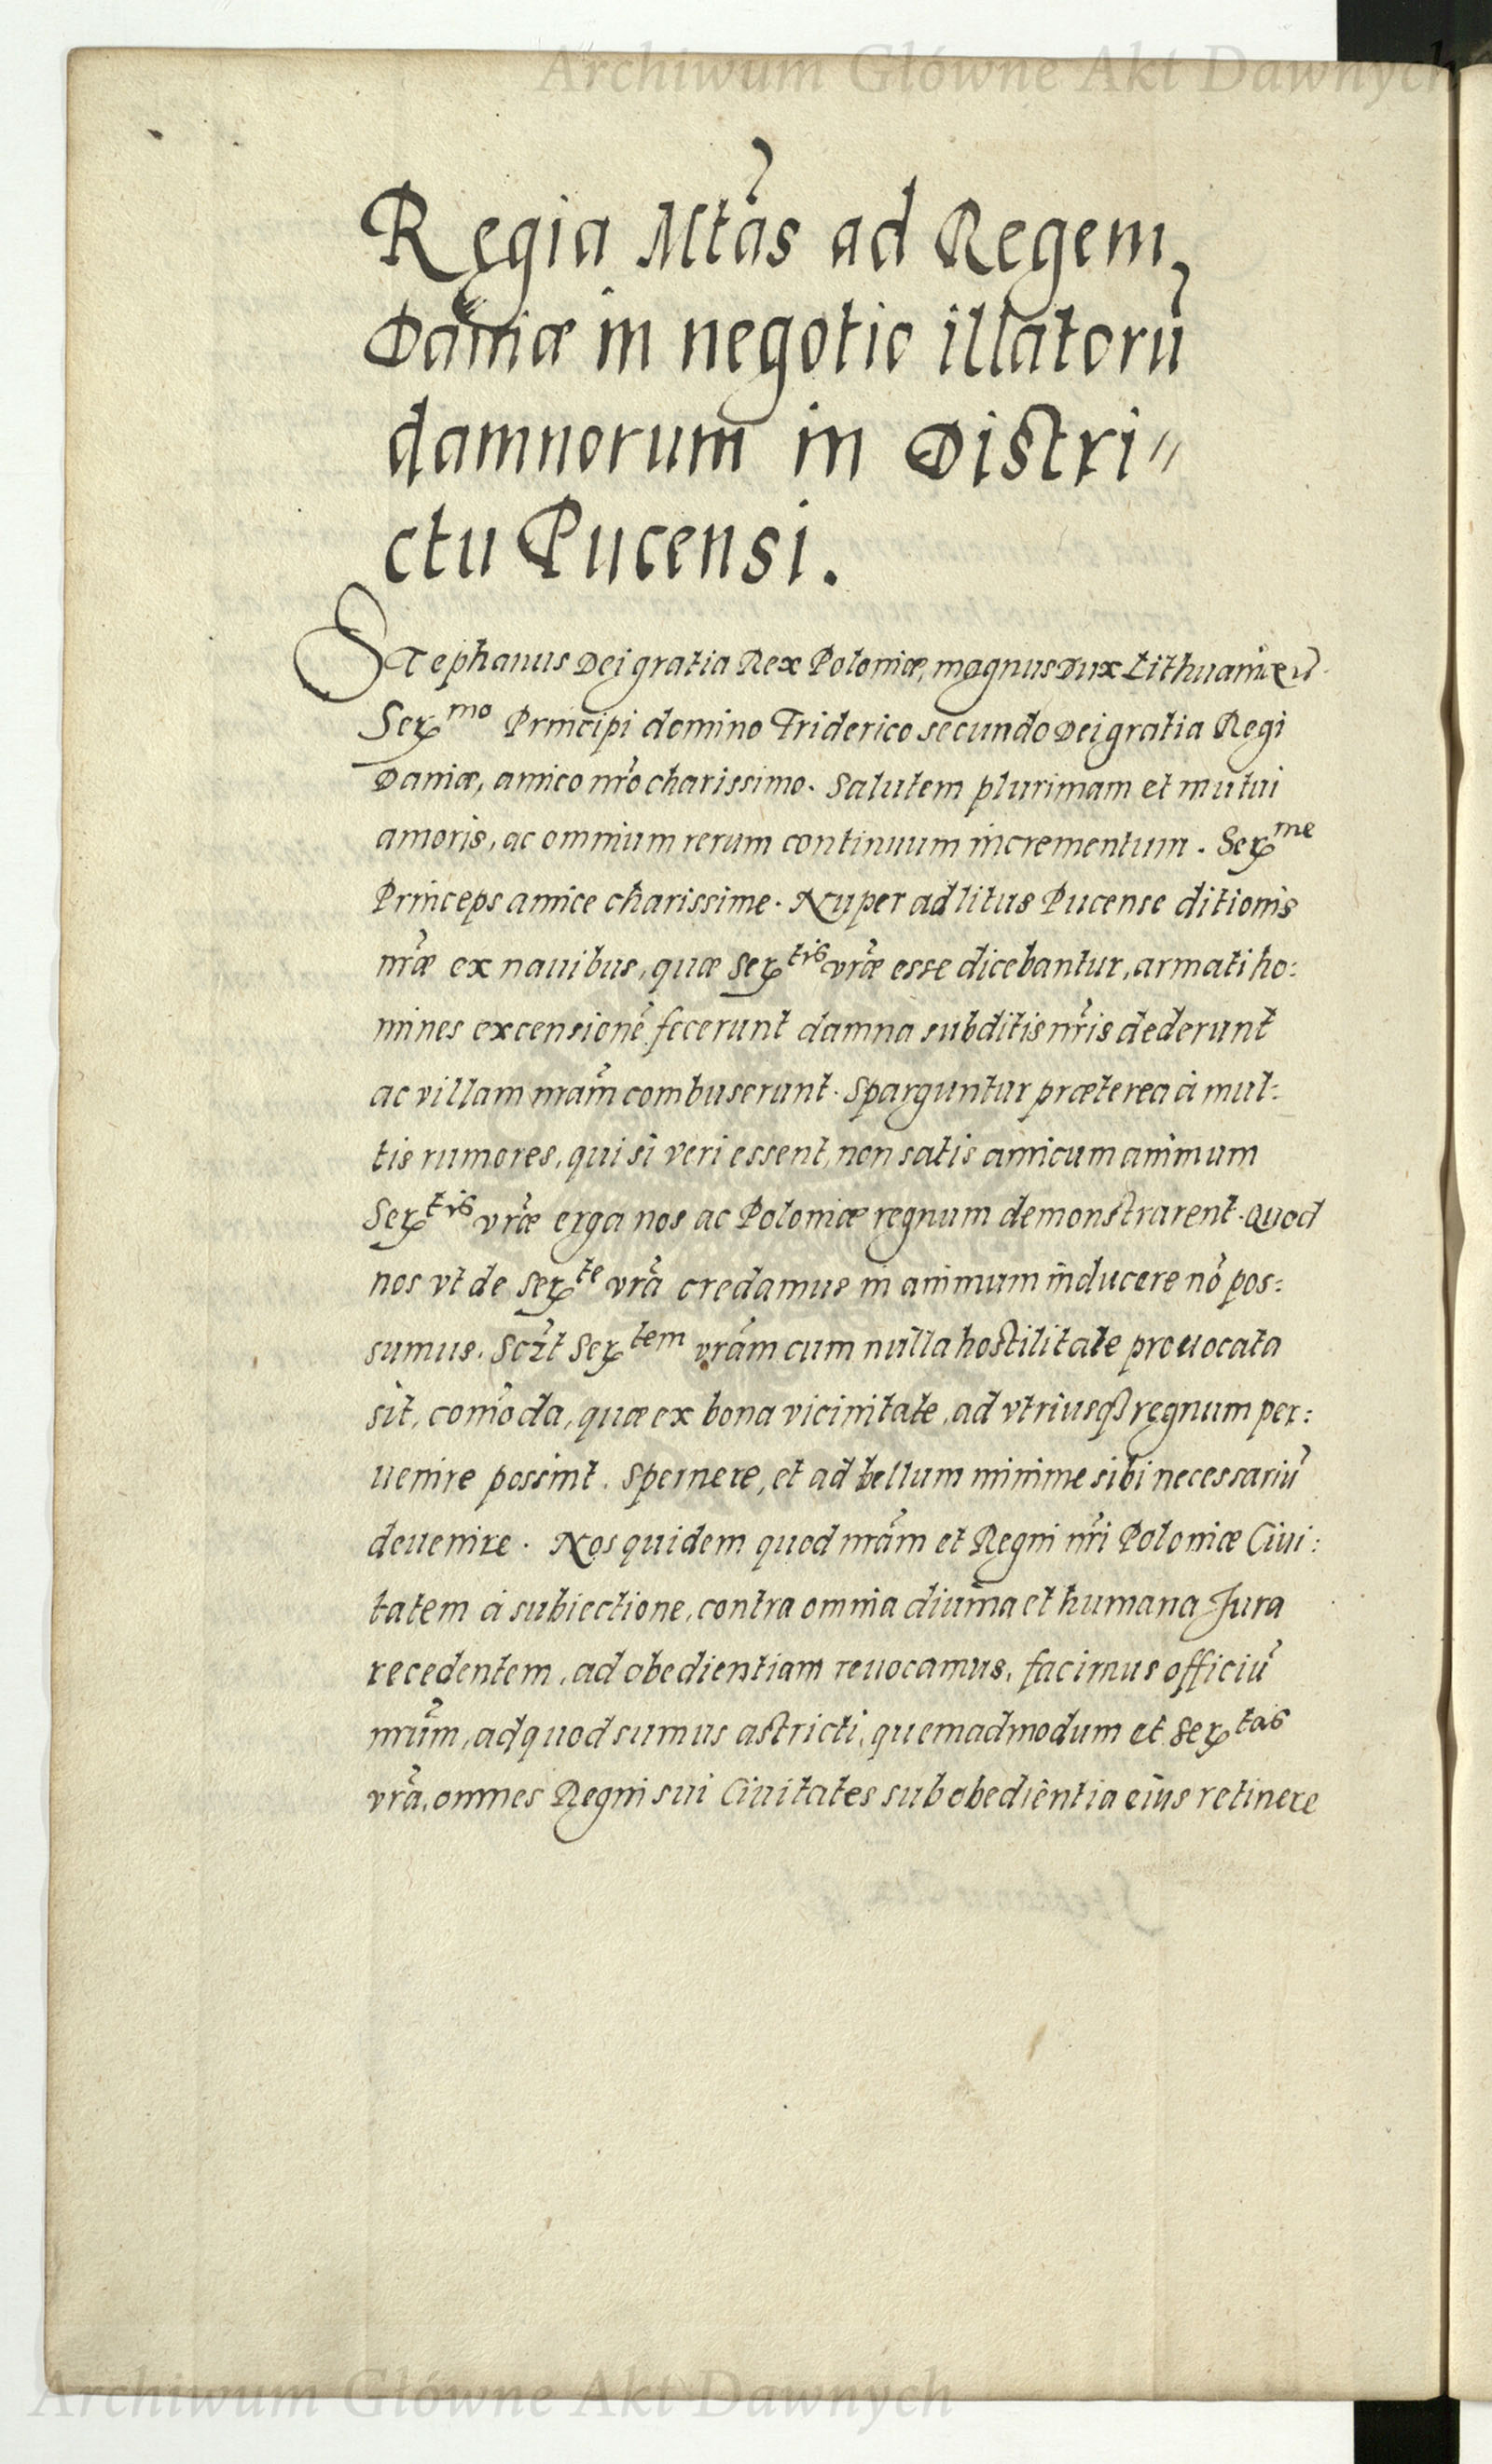 Archiwum Główne Akt Dawnych
Regia Mtãs ad Regem
Daniæ in negotio illatorũ
damnorum in Distri〃
ctu Pucensi.
STephanus Dei gratia Rex Poloniæ, magnus Dux Lithuaniæ
Ser^mo Principi domino Friderico secundo Dei gratia Regi
Daniæ, amico nr̃o charissimo. Salutem plurimam et mutui
amoris, ac omnium rerum continuum incrementum. Ser^me
Princeps amice charissime. Nuper ad litus Pucense ditionis
nr̃æ ex nauibus, quæ Ser^tis vr̃æ esse dicebantur, armati ho:
mines excensionẽ fecerunt damna subditis nr̃is dederunt
ac villam nrãm combuserunt. Sparguntur præterea à mul:
tis rumores, qui si veri essent, non satis amicum animum
Ser^tis vr̃æ erga nos ac Poloniæ regnum demonstrarent. Quod
nos vt de Ser^te vrã credamus in animum inducere nõ pos:
sumus. Scz̃t Ser^tem vrãm cum nulla hostilitate prouocata
sit, com̃oda, quæ ex bona vicinitate, ad vtriusqꝫ regnum per:
uenire possint. Spernere, et ad bellum minime sibi necessariũ
deuenire. Nos quidem quod nrãm et Regni nr̃i Poloniæ Ciui:
tatem à subiectione, contra omnia diuina et humana Jura
recedentem, ad obedientiam reuocamus, facimus officiũ
nrũm, ad quod sumus astricti, quemadmodum et Ser^tas
vrã, omnes Regni sui Ciuitates sub obedientia eius retinere
Archiwum Główne Akt Dawnych